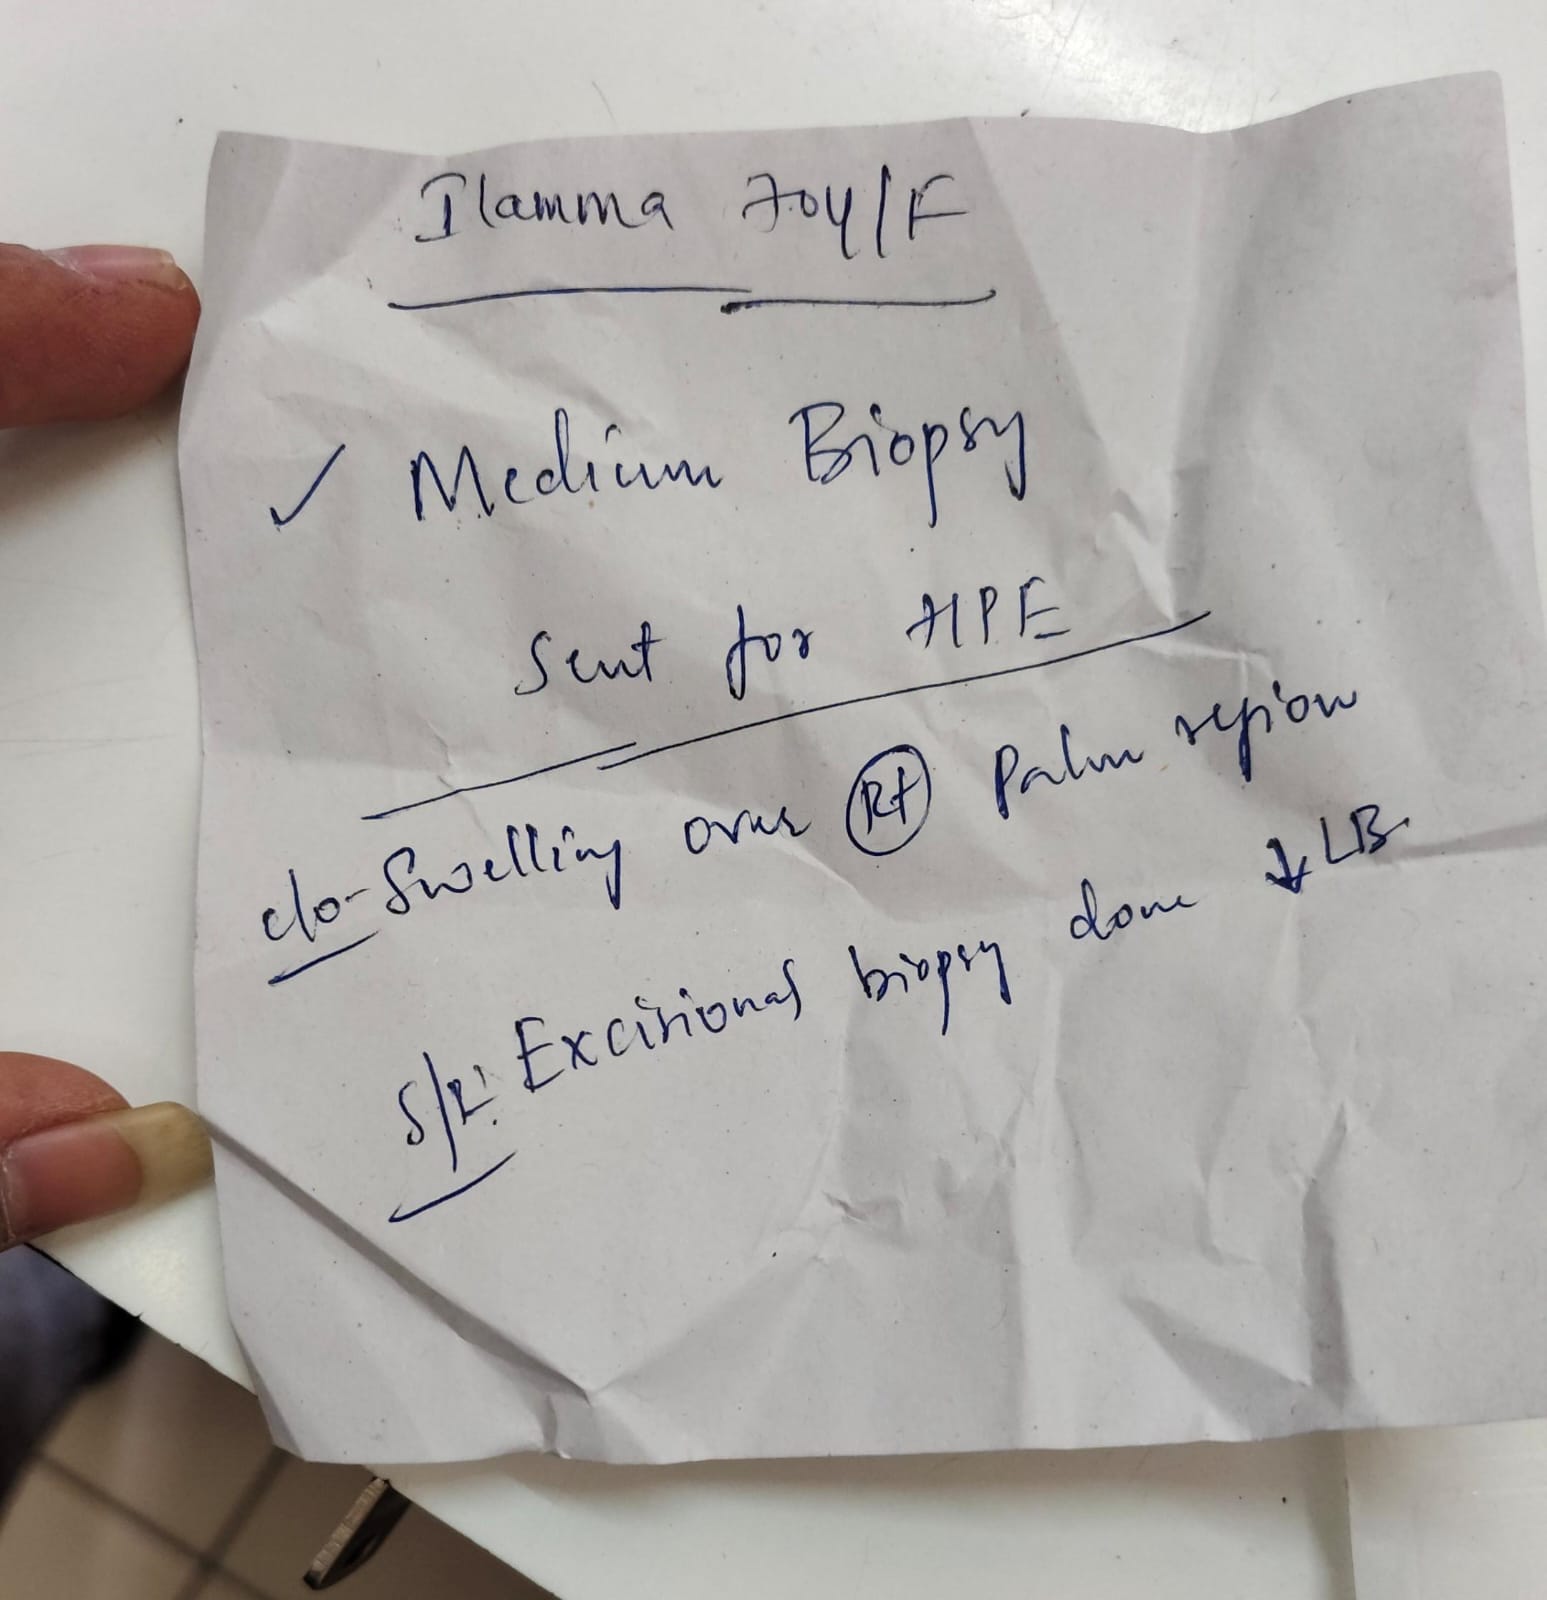 Ilamma 70y/F
✓ Medium Biopsy
Sent for HPE
c/o- Swelling over Rt Palm region
Excisional biopsy done ↓ LB.